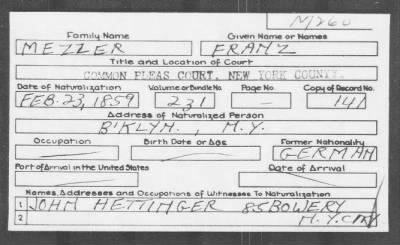 M260
Family Name Given Name or Names
MEZZER FRANZ
Title and Location of Court
COMMON PLEAS COURT, NEW YORK COUNTY.
Date of Naturalization Volume or Bundle No. Page No. Copy of Record No.
FEB. 23, 1859 231 — 141
Address of Naturalized Person
B'KLYN., N.Y.
Occupation Birth Date or Age Former Nationality
GERMAN
Port of Arrival in the United States Date of Arrival
Names, Addresses and Occupations of Witnesses To Naturalization
1 JOHN HETTINGER 85 BOWERY
2 N.Y. CITY